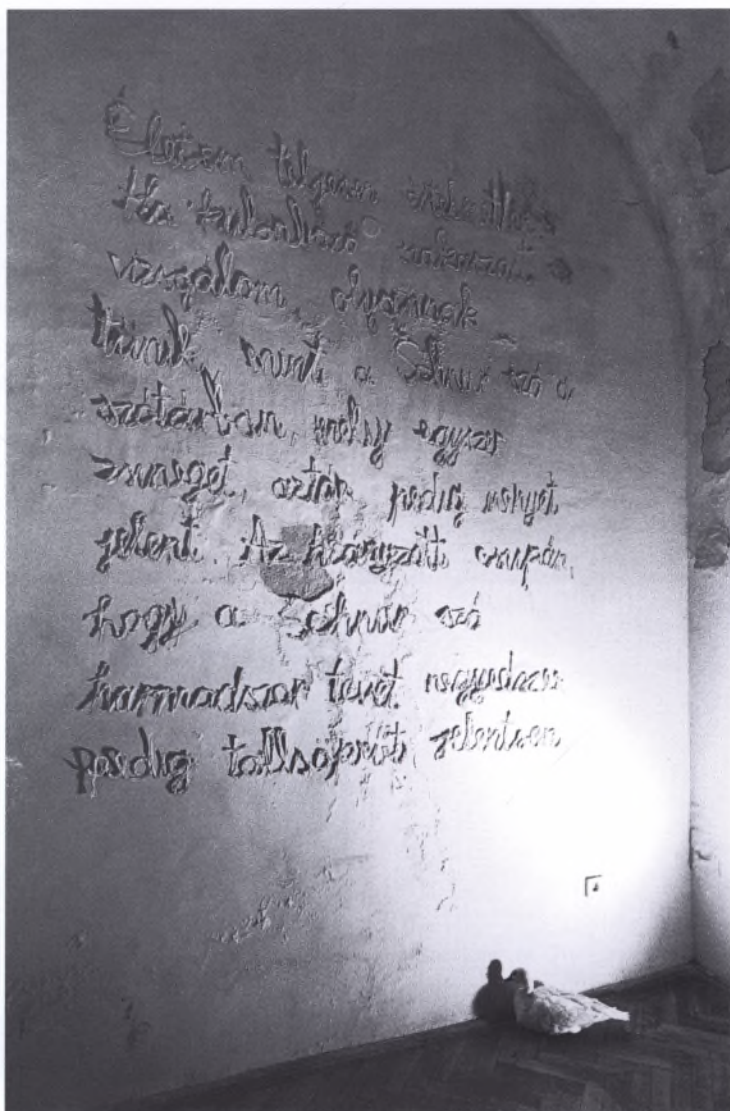 Életem teljesen
Ha különböző
vizsgálom, olyannak
tűnik, mint a Schnur szó a
szótárban, mely egyszer
zsineget, aztán pedig menyet
jelent. Az hiányzott csupán,
hogy a Schnur szó
harmadszor tevét, negyedszer
pedig tollseprűt jelentsen